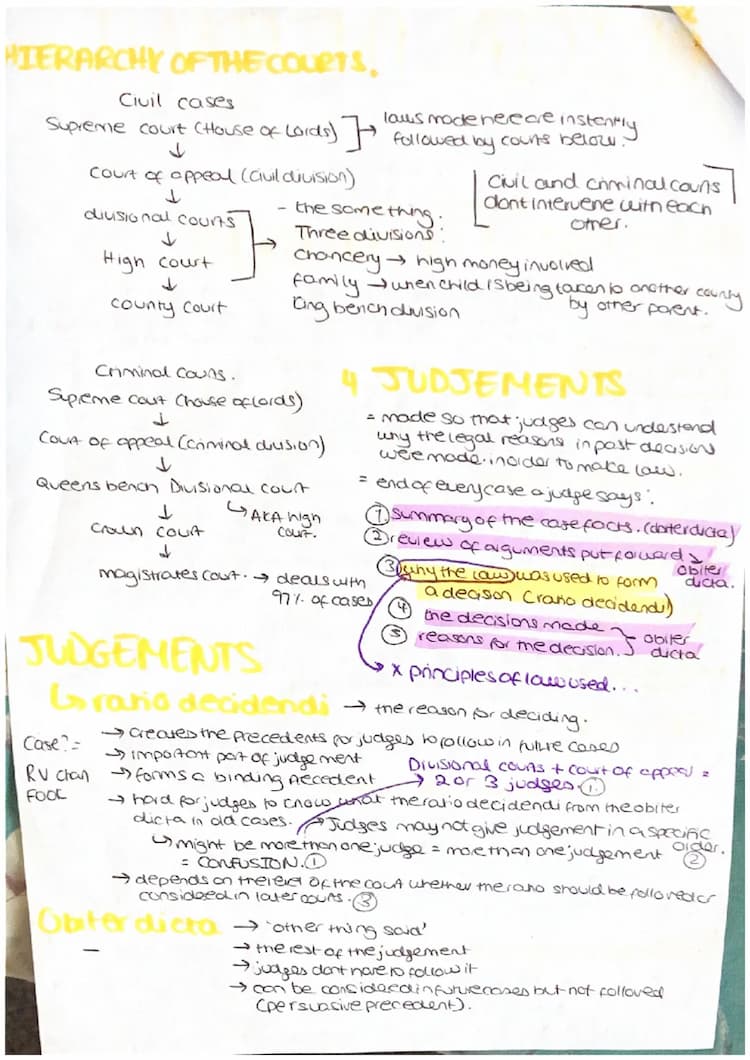 HIERARCHY OF THE COURTS.
Civil cases
Supreme court (House of Lords)
laws made here are instantly
followed by courts below.
↓
Court of appeal (civil division)
↓
divisional courts
↓
High court
↓
county court
- the same thing.
Three divisions:
Chancery → high money involved
family → when child is being taken to another county
by other parent.
King bench division
Civil and criminal courts
dont intervene with each
other.
Criminal courts.
Supreme court (house of lords)
↓
Court of appeal (criminal division)
↓
Queens bench Divisional court
↳ AKA high
court.
↓
Crown court
↓
magistrates court. → deals with
97% of cases
4 JUDJEMENTS
= made so that judges can understand
why the legal reasons in past decisions
were made. in order to make law.
= end of every case a judge says:
① summary of the case facts. (obiter dicta)
② review of arguments put forward → obiter
dicta.
③ why the law was used to form
a decision (ratio decidendi)
④ the decisions made
⑤ reasons for the decision. } obiter
dicta
* principles of law used...
JUDGEMENTS
↳ ratio decidendi → the reason for deciding.
Case? =
RV chan
FOOC
→ creates the precedents for judges to follow in future cases
→ important part of judgement
→ forms a binding precedent
Divisional courts + court of appeal =
2 or 3 judges. ①
→ hard for judges to know what the ratio decidendi from the obiter
dicta in old cases. → Judges may not give judgement in a specific
order. ②
↳ might be more than one judge = more than one judgement
= CONFUSION. ①
→ depends on the level of the court whether the ratio should be followed or
considered in later courts. ③
Obiter dicta → 'other thing said'
→ the rest of the judgement
→ judges dont have to follow it
→ can be considered in future cases but not followed
(persuasive precedent).